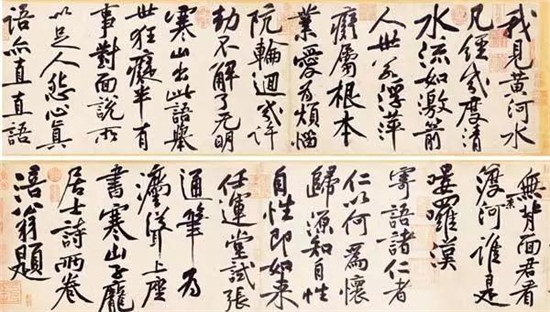 我見黃河水
凡經幾度清
水流如激箭
人世若浮萍
癡屬根本
業愛為煩惱
阬輪迴幾許
劫不解了無明
寒山出此語舉
世狂癡半有
事對面說所
以足人怨心真
語亦直直語
無背面君看
渡奈河誰是
嘍囉漢
寄語諸仁者
仁以何為懷
歸源知自性
自性即如來
任運堂試張
通筆為
灋聳上座
書寒山子龐
居士詩兩卷
涪翁題